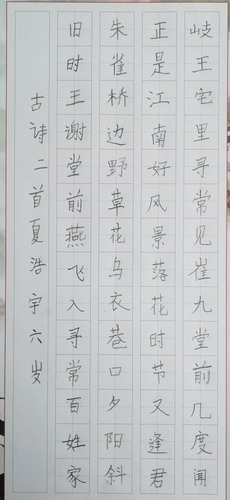 岐王宅里寻常见崔九堂前几度闻
正是江南好风景落花时节又逢君
朱雀桥边野草花乌衣巷口夕阳斜
旧时王谢堂前燕飞入寻常百姓家
古诗二首夏浩宇六岁